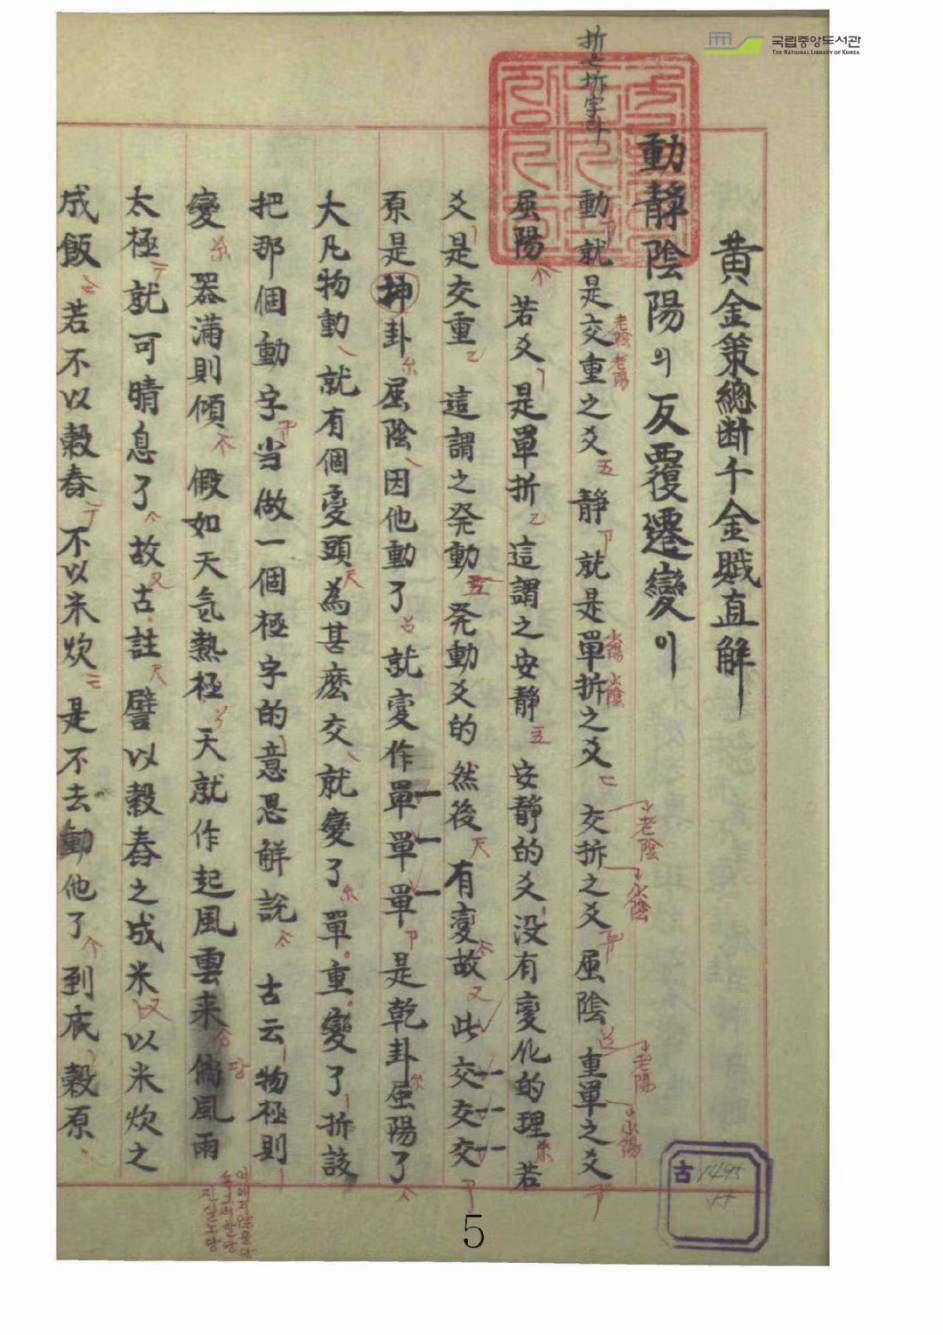 국립중앙도서관
THE NATIONAL LIBRARY OF KOREA
黃金策總断千金賦直解
動靜陰陽의反覆遷變이
動就是交重之爻靜就是單折之爻交折之爻屈陰重單之爻
老陰 老陽
少陽 少陰
老陰
少陰
老陽
少陽
屈陽若爻是單折這謂之安靜安靜的爻没有変化的理若
爻是交重這謂之発動発動爻的然後有変故此交交交
原是坤卦屈陰因他動了就変作單單單是乾卦屈陽了
大凡物動就有個変頭為甚麽交就變了單重變了折該
把那個動字当做一個極字的意思解説古云物極則
變器滿則傾假如天気熱極天就作起風雲来倘風雨
太極就可晴息了故古註譬以穀舂之成米以米炊之
成飯若不以穀舂不以米炊是不去動他了到底穀原
古
5